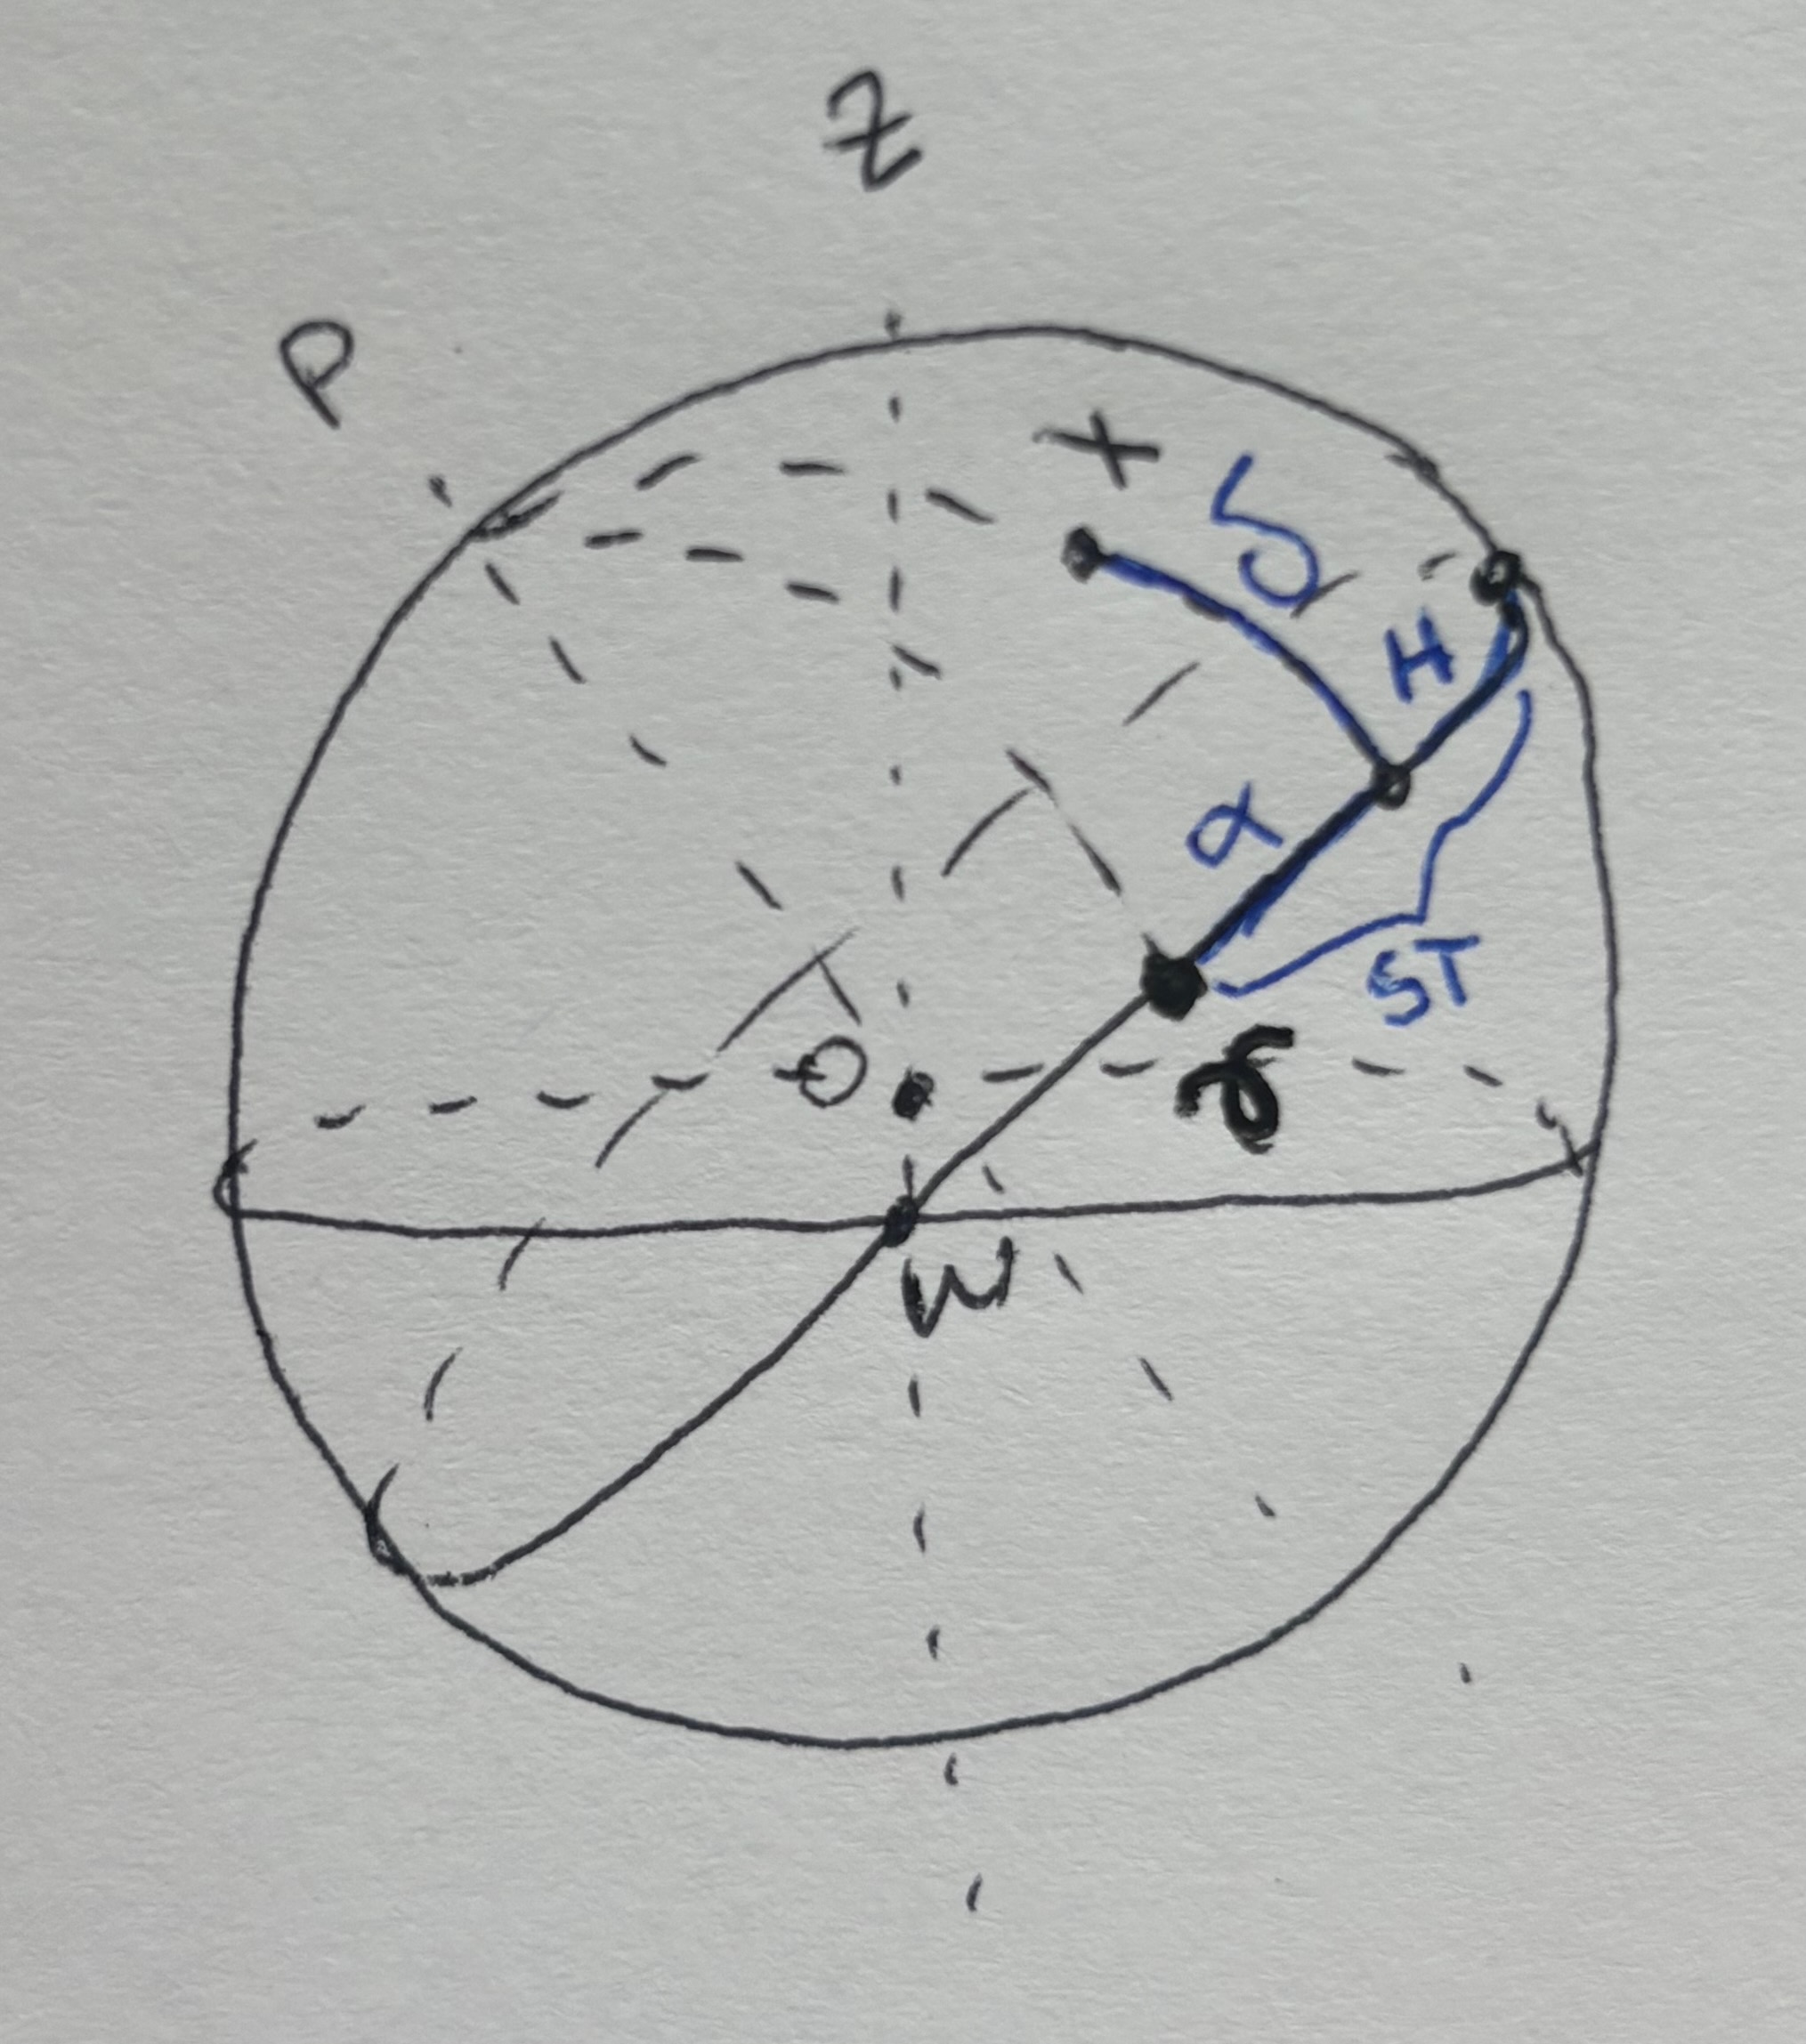 Z
P
X
δ
H
α
ST
O
γ
W